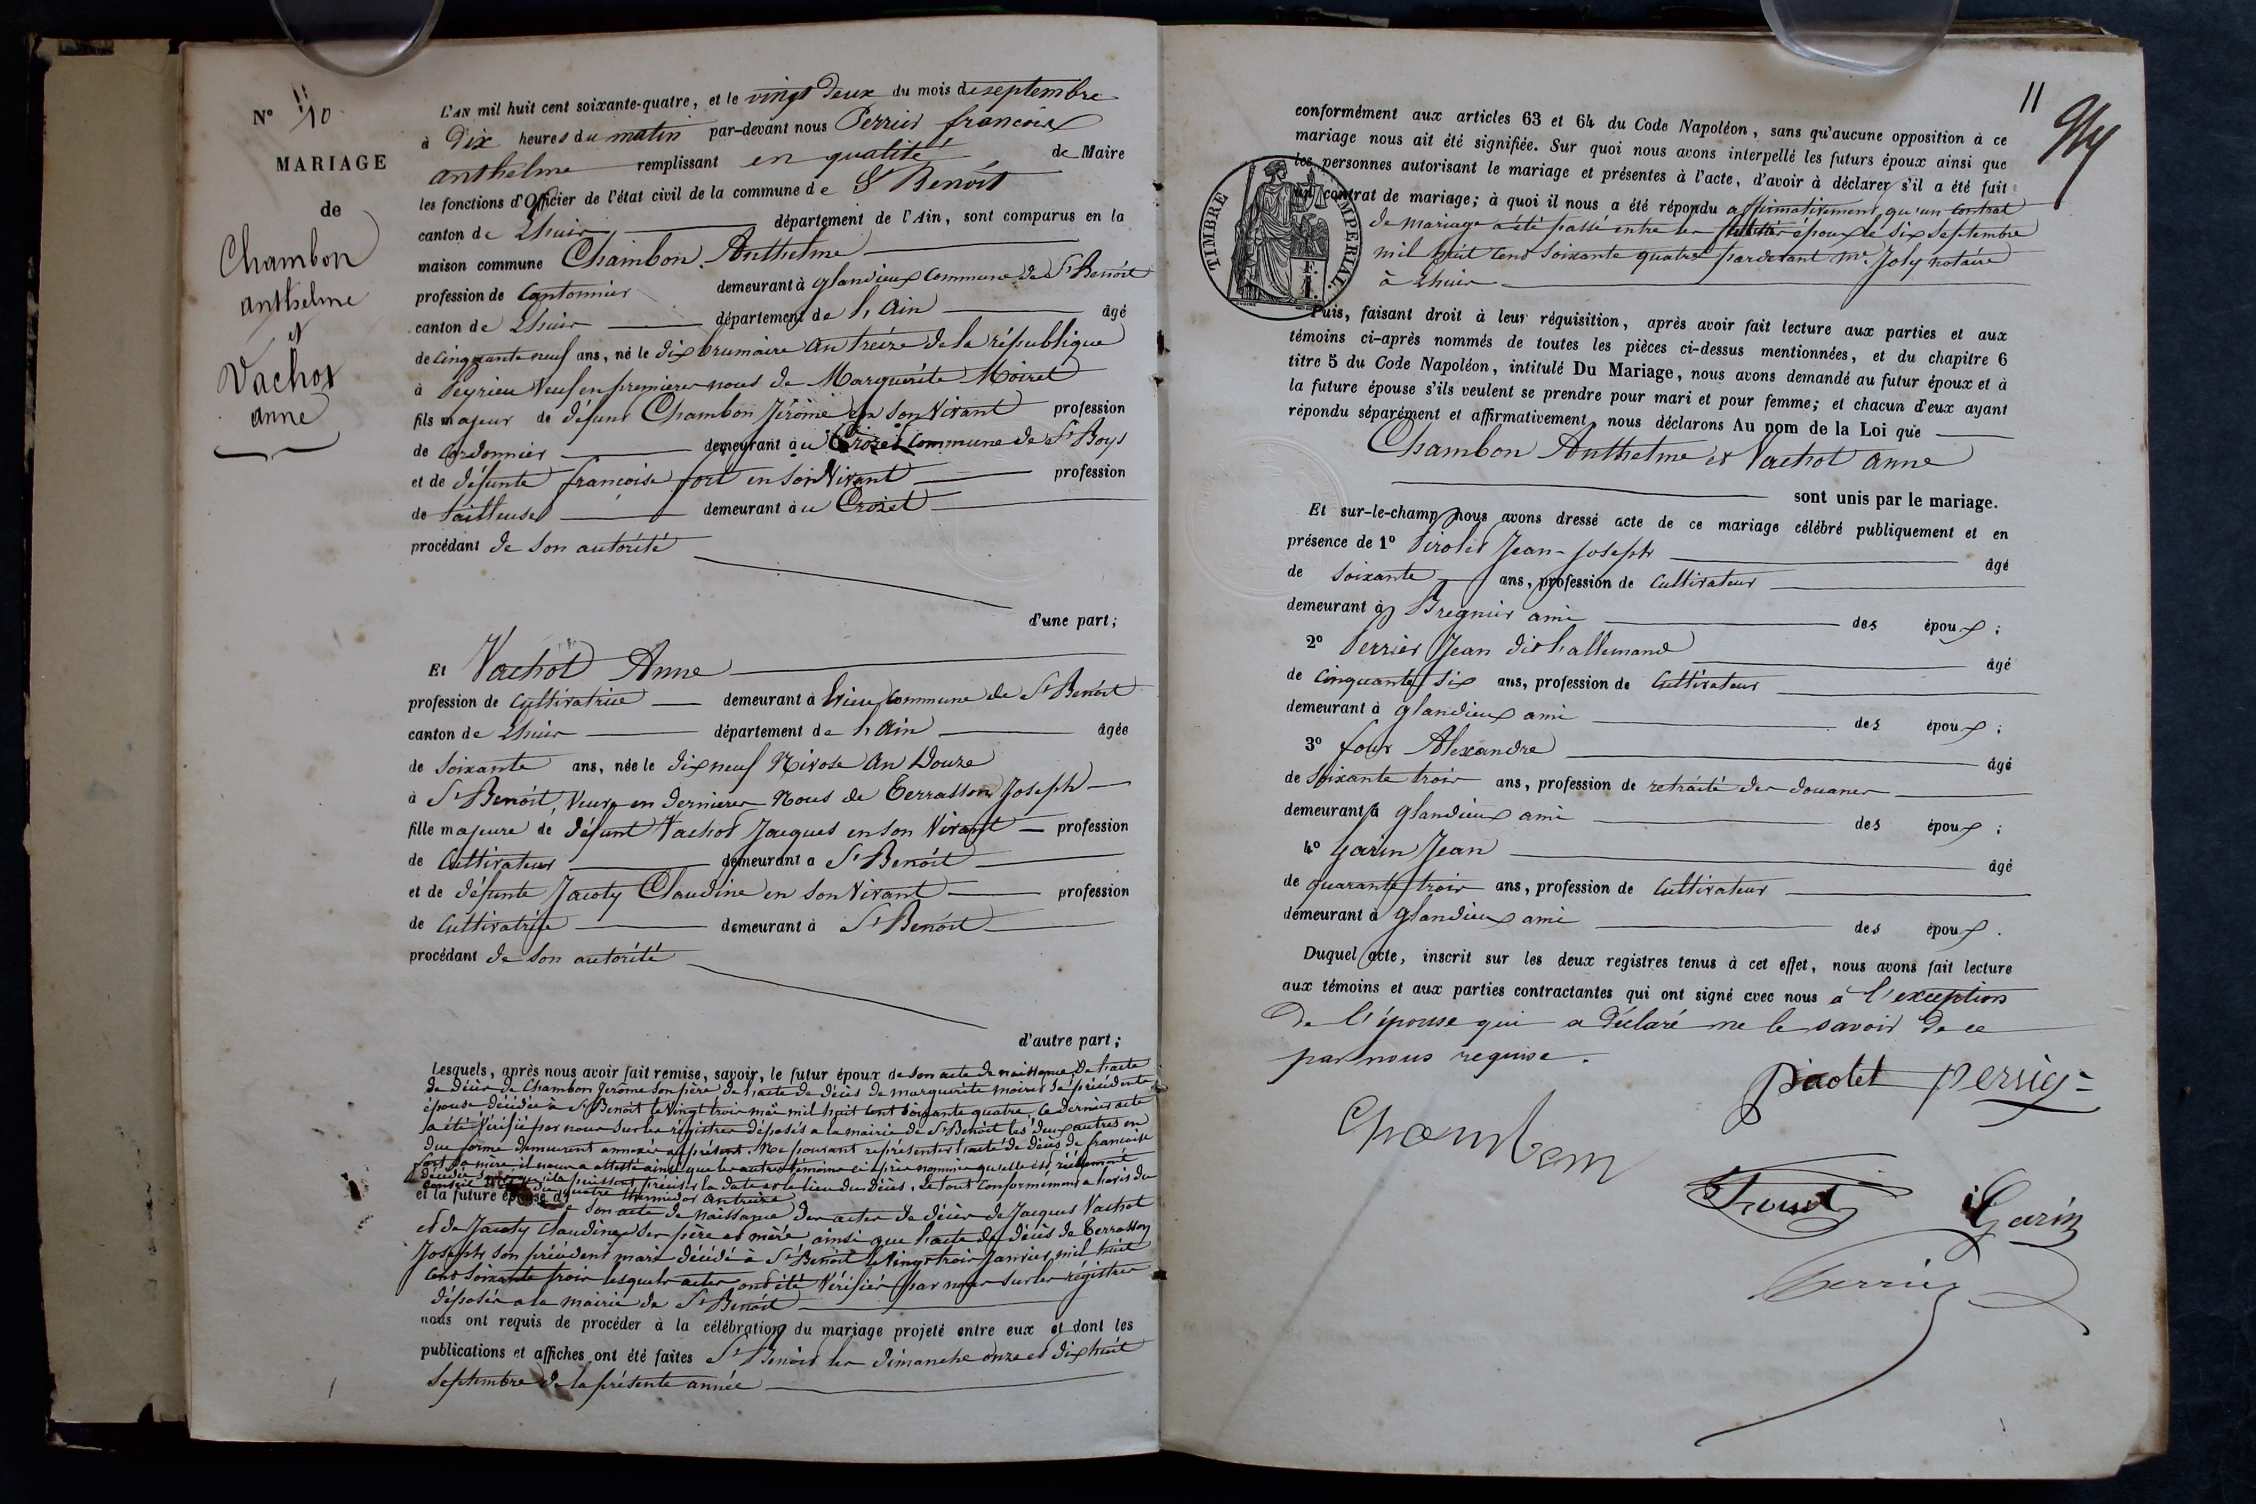 N° 11
10
MARIAGE
de
Chambon
anthelme
et
Vachot
anne
L'AN mil huit cent soixante-quatre, et le vingt deux du mois de septembre
à Dix heures du matin par-devant nous Perrier françois
anthelme remplissant en qualité de Maire
les fonctions d'Officier de l'état civil de la commune de St Benoît
canton de Lhuis département de l'Ain, sont comparus en la
maison commune Chambon Anthelme
profession de Cantonnier demeurant à glandieux commune de St Benoit
canton de Lhuis département de l'Ain âgé
de cinquante neuf ans, né le dix brumaire an treize de la république
à Peyrieu Veuf en premieres nous de Marguerite Moiret
fils majeur de défunt Chambon Jérôme en son Vivant profession
de Cordonnier demeurant au Crozet Commune de St Boys
et de défunte francoise fort en son Vivant profession
de tailleuse demeurant au Crozet
procédant de son autorité
d'une part;
Et Vachot Anne
profession de Cultivatrice demeurant à Brieu Commune de St Benoit
canton de Lhuis département de l'Ain âgée
de soixante ans, née le dix neuf Nivose An Douze
à St Benoit, Veuve en dernieres Nous de Terrasson Joseph
fille majeure de défunt Vachot Jacques en son Vivant profession
de Cultivateur demeurant à St Benoit
et de défunte Jacoty Claudine en son Vivant profession
de Cultivatrice demeurant à St Benoit
procédant de son autorité
d'autre part;
Lesquels, après nous avoir fait remise, savoir, le futur époux de son acte de naissance, De l'acte
de décès de Chambon Jérôme son père de l'acte de décès de marguerite moiret sa précédente
épouse décédée à St Benoit le vingt trois mai mil huit cent soixante quatre, ce dernier acte
a été Vérifié par nous sur les régistres déposés a la mairie de St Benoit les deux autres en
due forme demeurent annexés au présent. Ne pouvant représenter l'acte de décès de francoise
fort sa mère, il nous a attesté ainsi que les autres témoins ci après nommés qu'elle est réellement
décédée sans qu'ils puissent préciser la date et le lieu du décès, le tout conformément a l'avis du
conseil du quatre thermidor an treize
et la future épouse de son acte de naissance des actes de décès de Jacques Vachot
et de Jacoty Claudine ses père et mère ainsi que l'acte de décès de Terrasson
Joseph son précédent mari décédé à St Benoit le Vingt trois Janvier mil huit
cent soixante trois lesquels actes ont été Vérifiés par nous sur les régistres
déposés a la mairie de St Benoit
nous ont requis de procéder à la célébration du mariage projeté entre eux et dont les
publications et affiches ont été faites St Benoit les dimanche onze et dix huit
septembre de la présente année
11
conformément aux articles 63 et 64 du Code Napoléon, sans qu'aucune opposition à ce
mariage nous ait été signifiée. Sur quoi nous avons interpellé les futurs époux ainsi que
les personnes autorisant le mariage et présentes à l'acte, d'avoir à déclarer s'il a été fait
un contrat de mariage; à quoi il nous a été répondu affirmativement qu'un contrat
de mariage a été passé entre les époux le six septembre
mil huit cent soixante quatre pardevant Me Joly notaire
à Lhuis
TIMBRE IMPERIAL
F.
1.
Puis, faisant droit à leur réquisition, après avoir fait lecture aux parties et aux
témoins ci-après nommés de toutes les pièces ci-dessus mentionnées, et du chapitre 6
titre 5 du Code Napoléon, intitulé Du Mariage, nous avons demandé au futur époux et à
la future épouse s'ils veulent se prendre pour mari et pour femme; et chacun d'eux ayant
répondu séparément et affirmativement, nous déclarons Au nom de la Loi que
Chambon Anthelme et Vachot Anne
sont unis par le mariage.
Et sur-le-champ nous avons dressé acte de ce mariage célébré publiquement et en
présence de 1° Pirolet Jean-Joseph âgé
de soixante ans, profession de Cultivateur
demeurant à Bregnier ami des époux;
2° Perrier Jean dit l'allemand âgé
de cinquante six ans, profession de Cultivateur
demeurant à glandieux ami des époux;
3° four Alexandre âgé
de soixante trois ans, profession de retraité des douanes
demeurant à glandieux ami des époux;
4° garin Jean âgé
de quarante trois ans, profession de Cultivateur
demeurant à glandieux ami des époux.
Duquel acte, inscrit sur les deux registres tenus à cet effet, nous avons fait lecture
aux témoins et aux parties contractantes qui ont signé avec nous à l'exception
de l'épouse qui a déclaré ne le savoir de ce
par nous requise.
perrier
Chambon
Garin
Perrier